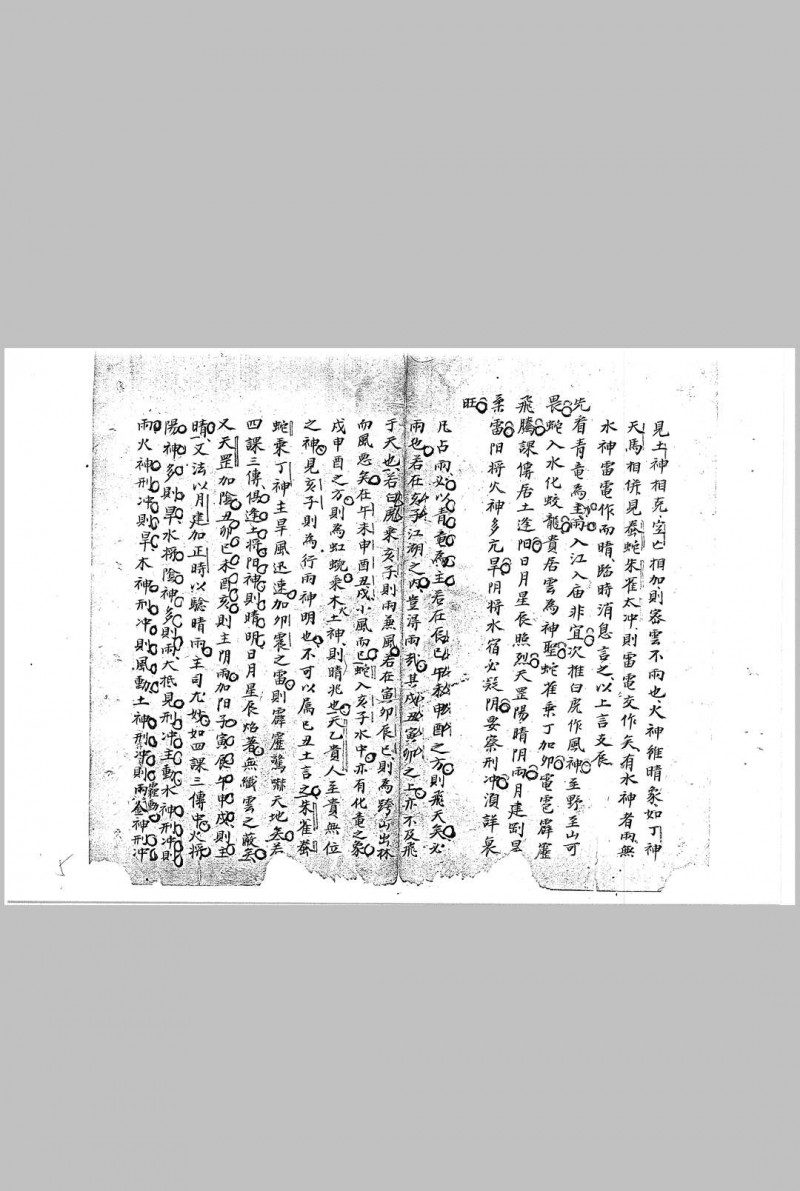 見土神相克空亡相加則密雲不雨也火神維晴象如丁神
天馬相併見螣蛇朱雀太冲則雷電交作矣有水神者雨無
水神雷電作而晴臨時消息言之以上言支辰
先看青竜為主雨入江入庙非宜次推白虎作風神至野至山可
畏蛇入水化蛟龍貴居雲為神聖蛇雀乗丁加卯電雹霹靂
飛騰課傳居土逢阳日月星辰照烈天罡陽晴阴雨月建罡星
柔雷阳将火神多亢旱阴将水宿必凝阴要察刑冲須詳衰
旺
凡占雨必以青竜為主若在辰巳午未申酉之方則飛天矣必
雨也若在亥子江湖之内豈得雨哉其戌丑寅卯之上亦不及飛
于天也若白虎乗亥子則雨兼風若在寅卯辰巳則為跨山出林
而風惡矣在午未申酉丑戌小風而已蛇入亥子水中亦有化竜之象
戊申酉之方則為虹蜺乗木火土神則晴兆也天乙貴人至貴無位
之神見亥子則為行雨神明也不可以属己丑土言之朱雀螣
蛇乗丁神主旱風迅速加卯震之雷則霹靂驚嚇天地矣若
四課三傳俱逢土将阳神則晴明日月星辰焰著無纖雲之蔽矣
又天罡加陰丑卯巳未酉亥則主阴雨加阳子寅辰午申戌則主
晴又法以月建加正時以驗晴雨主司尤妙如四課三傳中火将
陽神多則旱水将陰神多則雨大抵見刑冲主動水神刑冲則
雨火神刑冲則旱木神刑冲則風動土神刑冲則雨金神刑冲
雷動
5